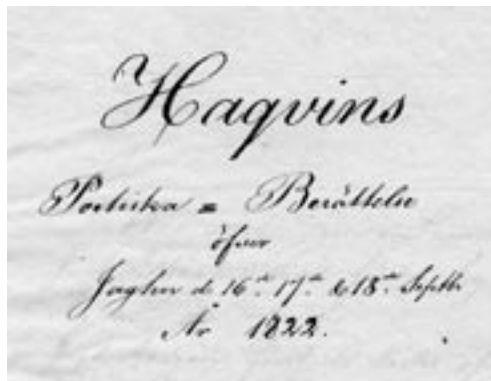 Haqvins
Poetiska = Berättelse
öfver
Jagten d. 16de 17de & 18de Septbr
År 1822.